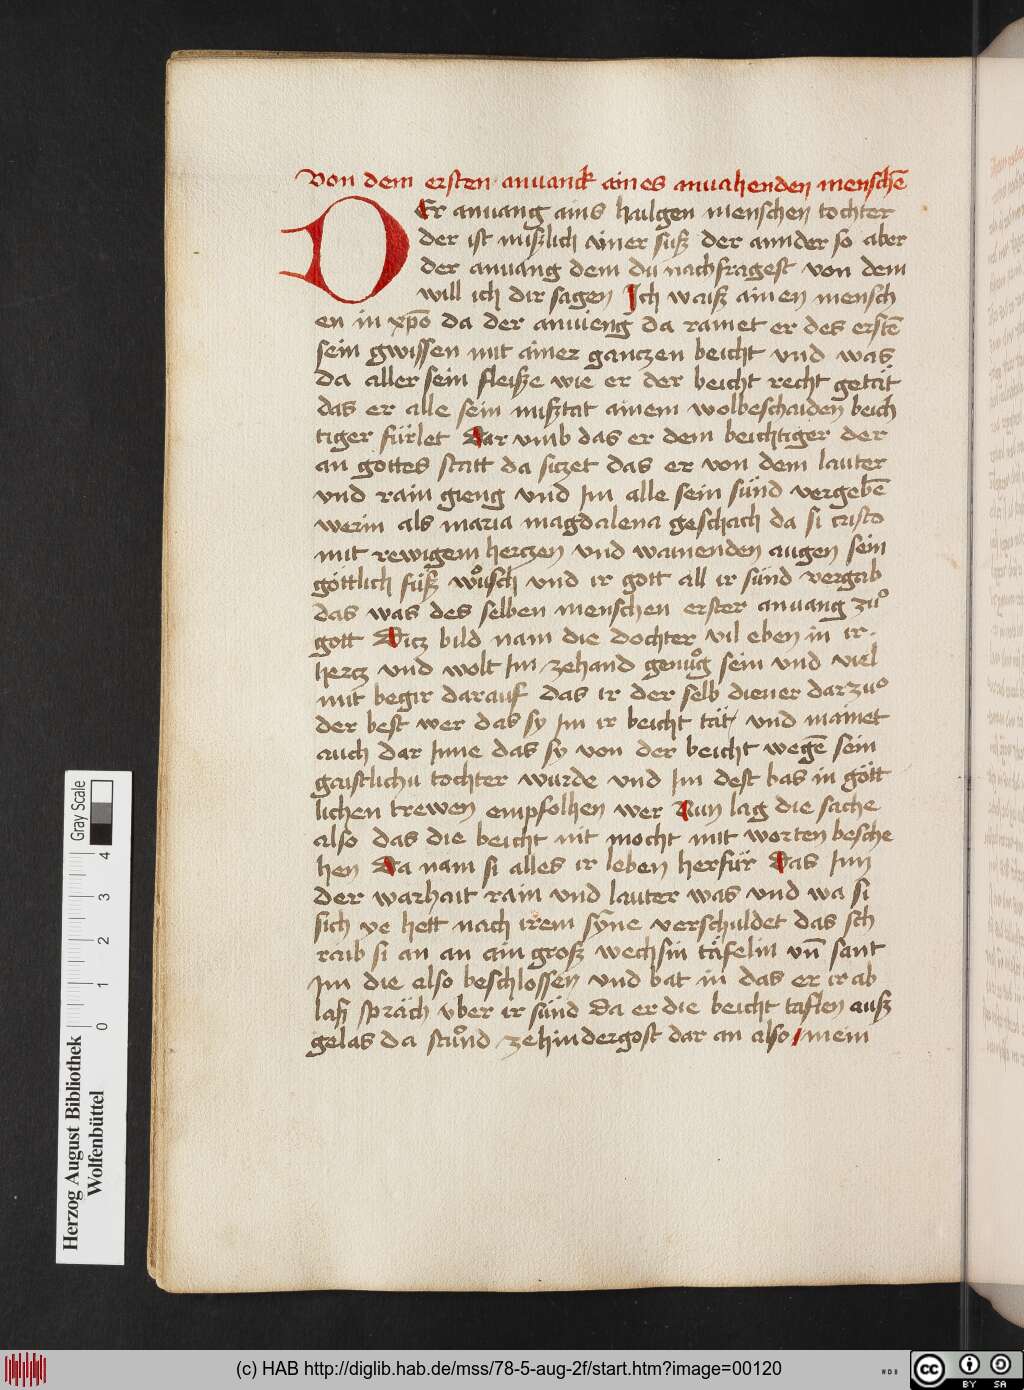 Von dem ersten anuanck aines anuahenden menschē
DEr anuang ains hailgen menschen tochter
der ist mißlich ainer suß der annder so aber
der anuang dem du nachfragest von dem
will ich dir sagen Ich waiß ainen mensch
en in xpō da der anuieng da ramet er des erstē
sein gwissen mit ainer ganczen beicht vnd was
da aller sein fleiße wie er der beicht recht getät
das er alle sein mißtat ainem wolbeschaiden beich
tiger fürlet Dar vmb das er dem beichtiger der
an gottes statt da siczet das er von dem lauter
vnd rain gieng vnd Im alle sein sünd vergebē
werin als maria magdalena geschach da si cristo
mit rewigem herczen vnd wainenden augen sein
göttlich füß wůsch vnd ir gott all ir sünd vergab
das was des selben menschen erster anuang zů
gott Dicz bild nam die dochter vil eben in ir
hercz vnd wolt Im zehand genůg sein vnd viel
mit begir darauf das ir der selb diener darzuͦ
der best wer das sy Im ir beicht tät vnd mainet
auch dar Inne das sy von der beicht wegē sein
gaistlichu tochter wurde vnd Im dest bas in gött
lichen trewen empfolhen wer Nun lag die sache
also das die beicht nit mocht mit worten besche
hen Da nam si alles ir leben herfür Das Inn
der warhait rain vnd lauter was vnd wa si
sich ye hett nach irem syñe verschuldet das sch
raib si an an ain groß wechsin täfelin vn̄ sant
Im die also beschlossen vnd bat in das er ir ab
laß spräch vber ir sünd Da er die beicht taflen auß
gelas da stůnd zehindergost dar an also mein
Gray Scale
4
3
2
1
0
Herzog August Bibliothek
Wolfenbüttel
(c) HAB http://diglib.hab.de/mss/78-5-aug-2f/start.htm?image=00120
WDB
cc BY SA